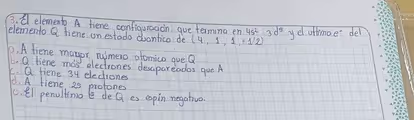 3. El elemento A tiene configuración que termina en 4s² 3d⁸ y el ultimo e⁻ del
elemento Q tiene un estado cuantico de (4, 1, 1, +1/2)
a. A tiene mayor número atomico que Q
b. Q tiene más electrones desapareados que A
c. Q tiene 34 electrones
d. A tiene 25 protones
e. El penultimo e⁻ de Q es espín negativo.